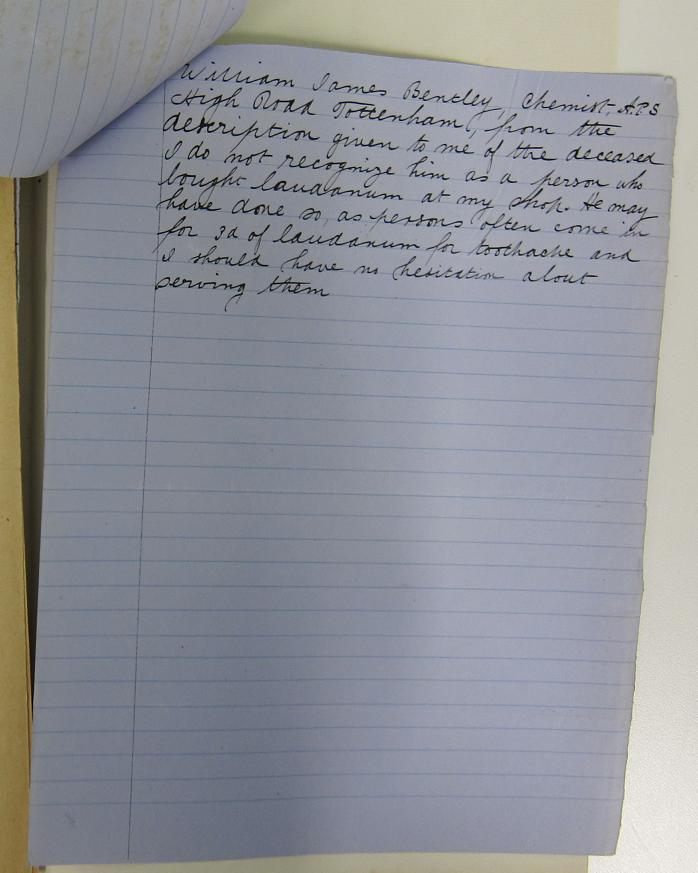 William James Bentley, Chemist, A.P.S
High Road Tottenham, from the
description given to me of the deceased
I do not recognize him as a person who
bought laudanum at my shop. He may
have done so, as persons often come in
for 3d of laudanum for toothache and
I should have no hesitation about
serving them